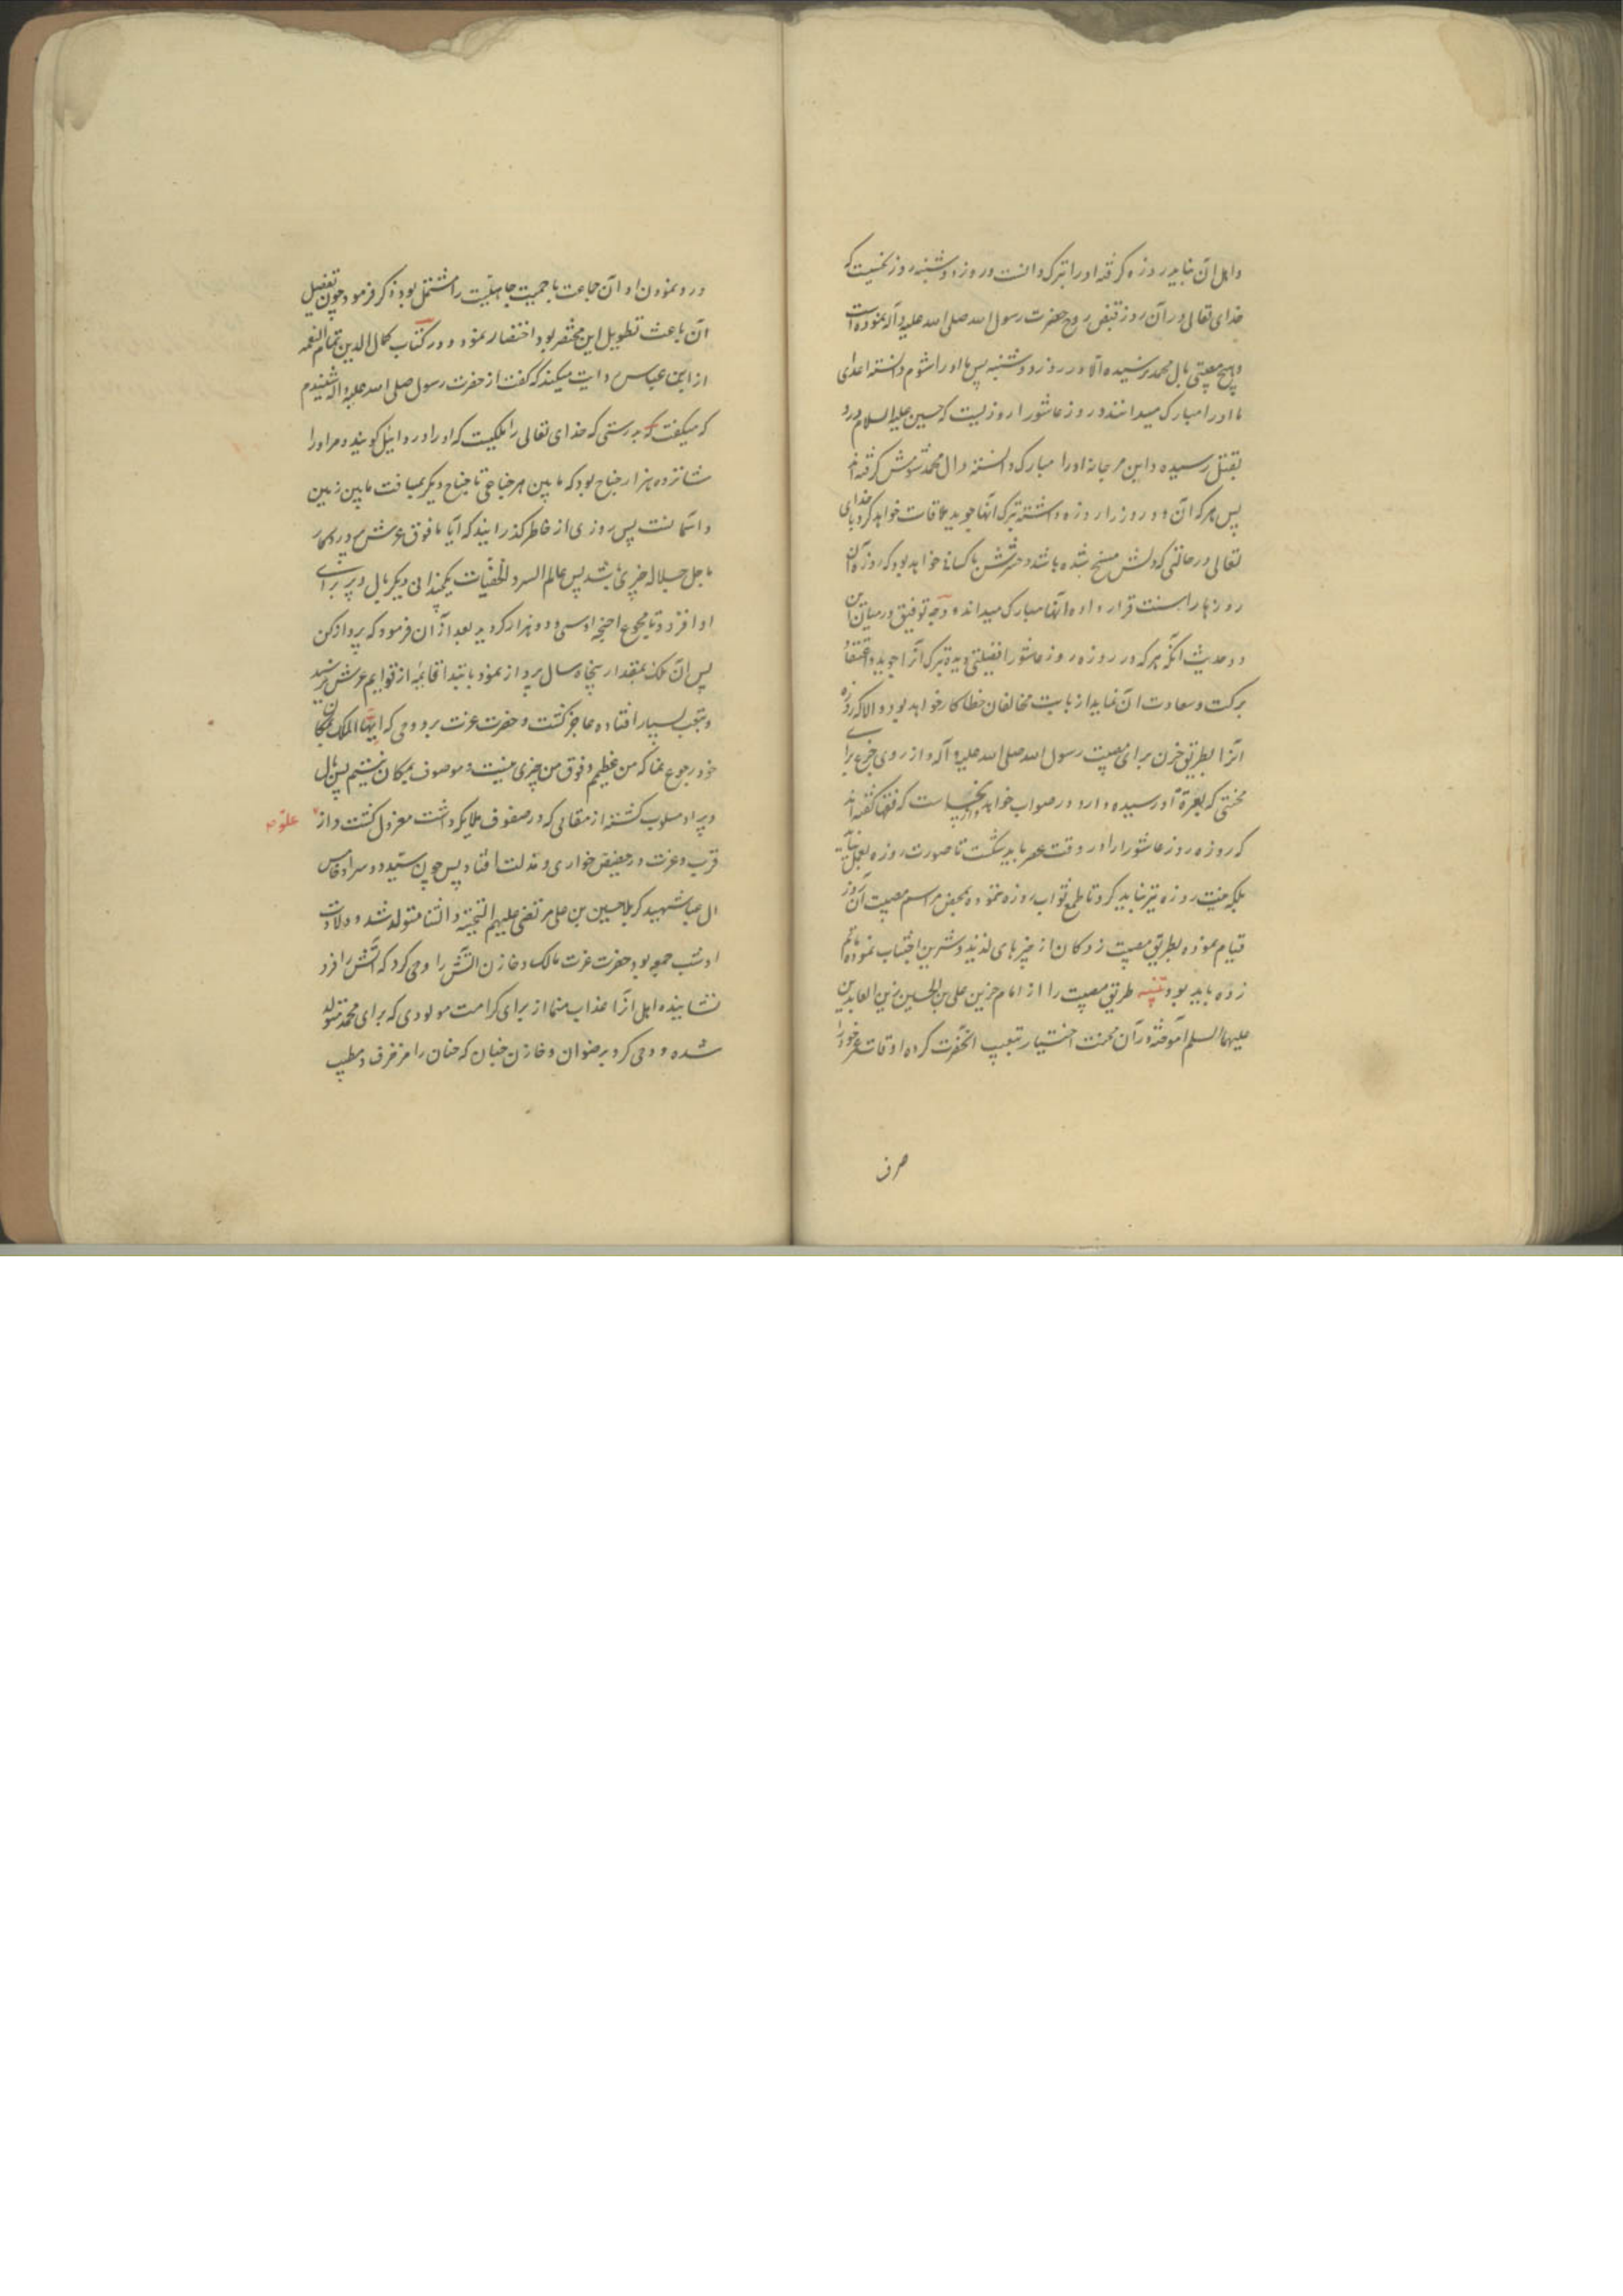 و اهل آن نباید روزه گرفته او را تبرک دانست و روز دوشنبه روز نحسیست که
خدای تعالی در آن روز قبض روح حضرت رسول الله صلی الله علیه و آله نموده است
و هیچ مصیبتی بال محمد نرسیده الا در روز دوشنبه پس ما او را شوم دانسته اعدای
ما او را مبارک میدانند و روز عاشورا روزیست که حسین علیه السلام درو
بقتل رسیده و ابن مرجانه او را مبارک دانسته و ال محمد شومش گرفته‌اند
پس هر که آن دو روز را روزه داشته تبرک آنها جوید ملاقات خواهد کرد با خدای
تعالی در حالتی که دلش مسخ شده باشد و حشرش با کسانی خواهد بود که روزه آن
روزها را سنت قرار داده آنها مبارک میدانند وجه توفیق در میان این
دو حدیث آنکه هر که در روزه روز عاشورا فضیلتی دیده تبرک آنرا جوید و اعتقاد
برکت و سعادت آن نماید از بابت مخالفان خطا کار خواهد بود و الا که روزه
آنرا بطریق حزن برای مصیبت رسول الله صلی الله علیه و آله و از روی جزع برای
محنتی که بعترة او رسیده دارد در صواب خواهد بود چنانچه است که فقها گفته‌اند
که روزه روز عاشورا را در وقت عصر باید شکست تا صورت روزه بعمل نیاید
بلکه نیت روزه نیز نباید کرد تا طمع ثواب روزه ننموده بمحض مراسم مصیبت آن روز
قیام نموده بطریق مصیبت زدکان از چیزهای لذیذ و شیرین اجتناب نموده ماتم
زده باید بود تنبیه طریق مصیبت را از امام حزین علی بن الحسین زین العابدین
علیهما السلم آموخته در آن محنت اختیار تبعیت آنحضرت کرده اوقات عمر خود را
صرف
در و نمودن او آن جماعت با حمیت جاهلیت را مشتمل بود ذکر فرمود چون تفصیل
آن باعث تطویل این مختصر بود اختصار نمود و در کتاب کمال الدین تمام النعمه
از ابن عباس روایت میکند که گفت از حضرت رسول صلی الله علیه و اله شنیدم
که میگفت که بدرستی که خدای تعالی را ملکیست که او را دردائیل گویند و مر او را
شانزده هزار جناح بود که ما بین هر جناحی تا جناح دیگر بمسافت ما بین زمین
و آسمانست پس روزی از خاطر گذرانید که آیا ما فوق عرش پروردگار
ما جل جلاله چیزی باشد پس عالم السر و الخفیات یکچندانی دیگر بال و پر برای
او افزود تا مجموع اجنحه او سی و دو هزار گردید بعد از آن فرمود که پرواز کن
پس آن ملک بمقدار پنجاه سال پرواز نمود باینتدا قایمه از قوایم عرش نرسید
و بتعب بسیار افتاده عاجز گشت و حضرت عزت برو وحی کرد ایها الملک بمکان
خود رجوع نما که من عظیم و فوق من چیزی نیست و موصوف بمکان نیستم پس بال
و پر او مسلوب گشته از مقامی که در صفوف ملایکه داشت معزول گشت و از علوّ
قرب و عزت در حضیض خواری و مذلت افتاد پس چون سید دو سرا و خامس
ال عبا شهید کربلا حسین بن علی مرتضی علیهم التحیة و الثنا متولد شد و ولادت
او شب جمعه بود حضرت عزت مالک و خازن آتش را وحی کرد که آتش را فرو
نشانیده اهل آنرا عذاب منما از برای کرامت مولودی که برای محمد متولد
شده و وحی کرد برضوان و خازن جنان که جنان را مزخرف و مطیب